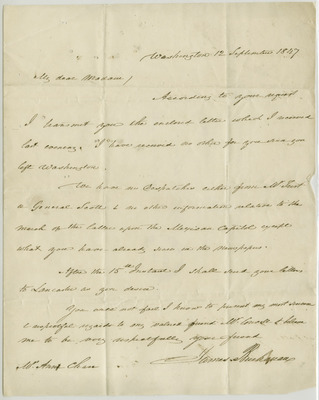 Washington 12 September 1847
My dear Madam/
According to your request
I transmit you the enclosed letter which I received
last evening. I have received no other for you since you
left Washington.
We have no Despatches either from Mr Trist
or General Scott & no other information relative to the
march of the latter upon the Mexican Capital except
what you have already seen in the newspapers.
After the 15th Instant I shall send your letters
to Lancaster as you desire.
You need not fear I know to present my most
& respectful regards to my valued friend & believe
me to be very respectfully your friend
James Buchanan
Mrs Ann